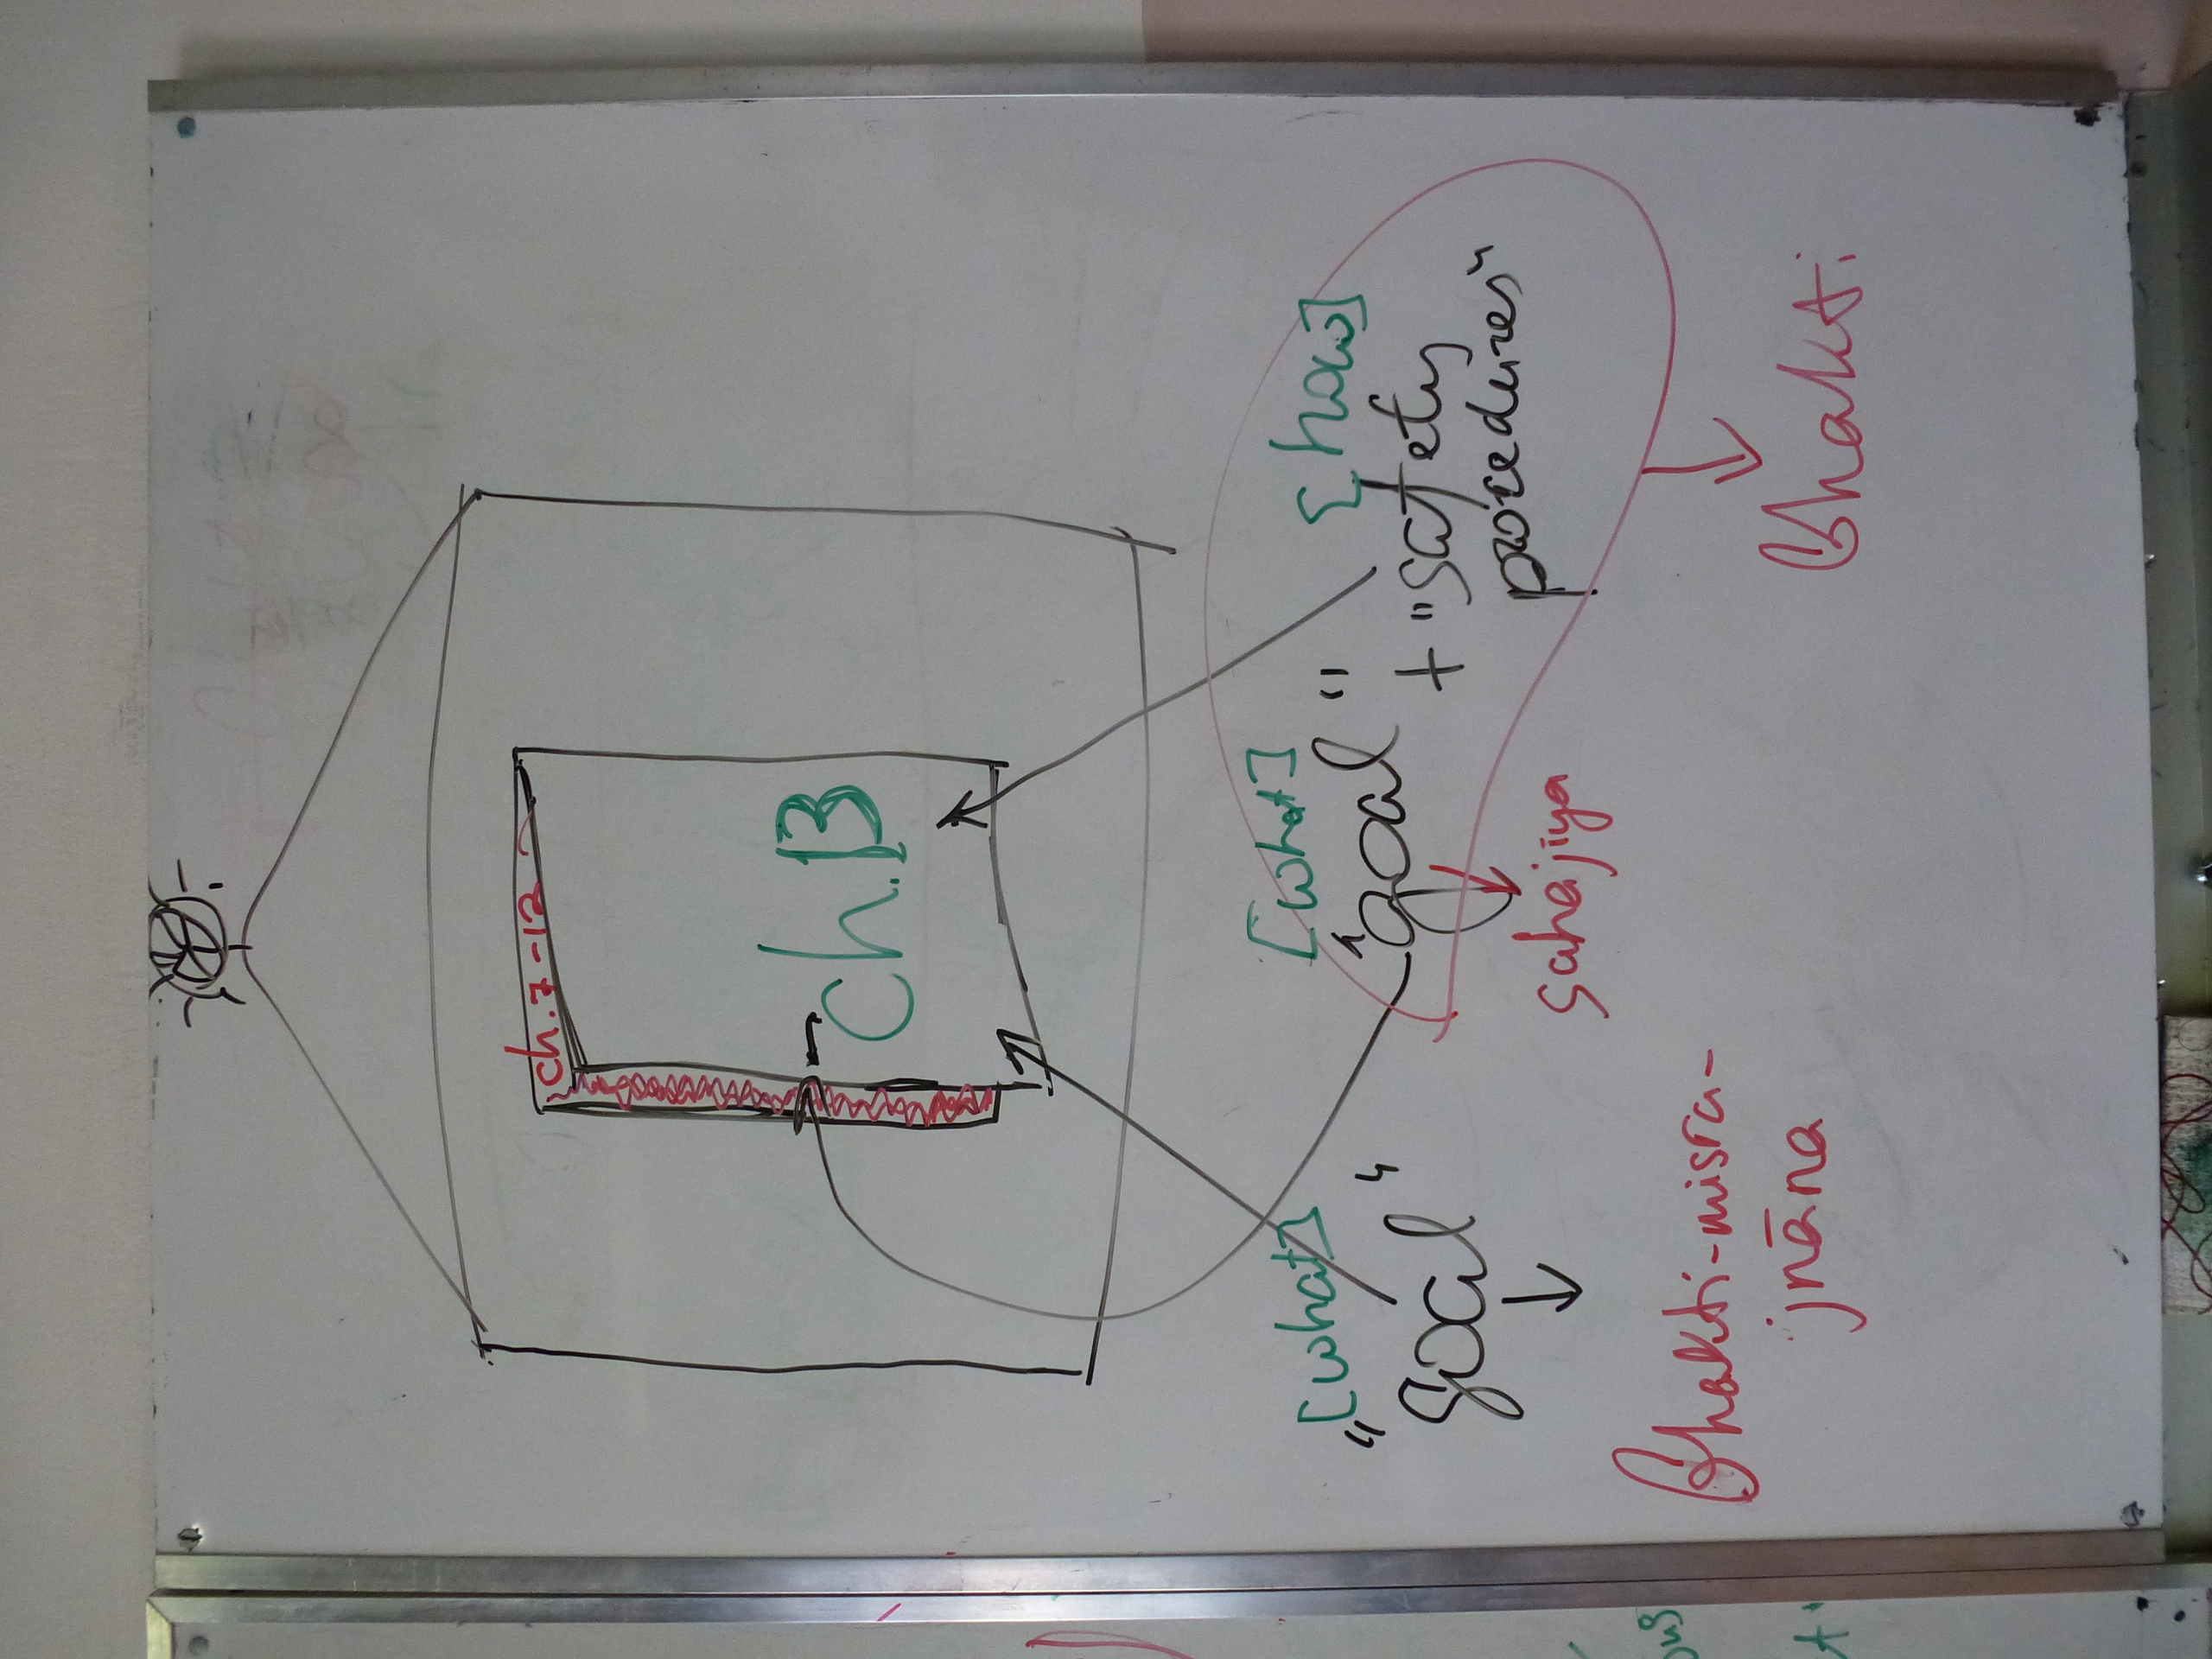 Ch. 7-12
Ch. 13
[what]
"goal"
[what]
"goal"
[how]
+ "safety
procedures"
Bhakti-misra-
jnāna
Sahajīya
Bhakti